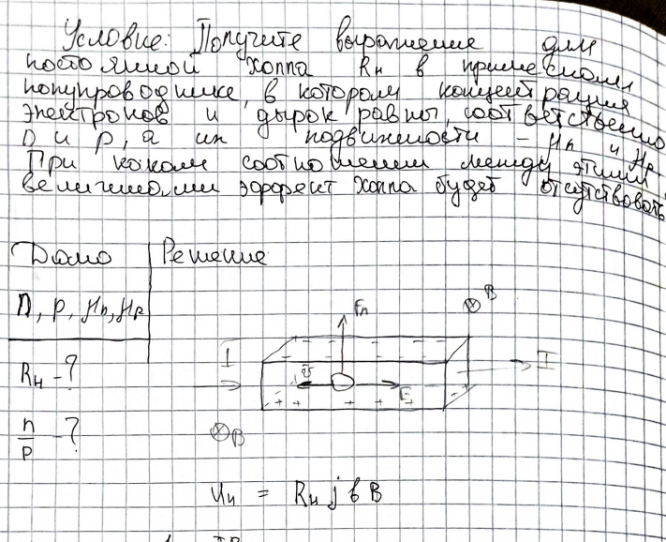 Условие: Получите выражение для
постоянной Холла Rн в примесном
полупроводнике, в котором концентрация
электронов и дырок равны, соответственно
n и p, а их подвижности – μn и μp.
При каком соотношении между этими
величинами эффект Холла будет отсутствовать
Дано Решение
n, p, μn, μp
Rн - ?
n/p - ?
Fл
⊗B
I
υ
E
I
⊗B
Uн = Rн j b B